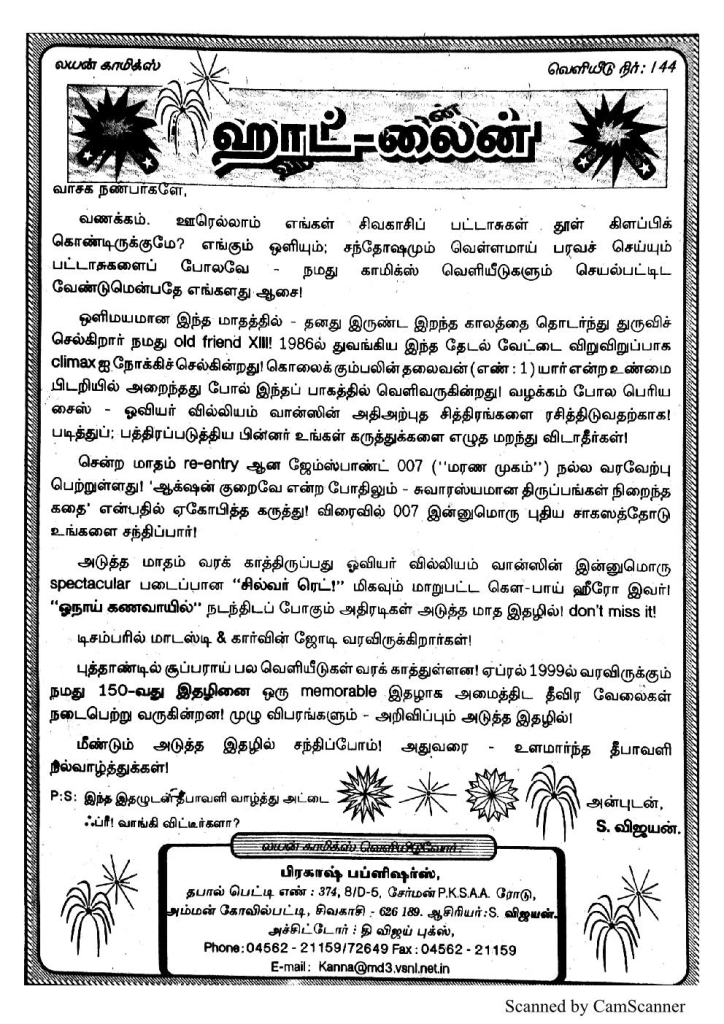 லயன் காமிக்ஸ்
வெளியீடு நிர்: 144
ஹாட்-லைன்
வாசக நண்பர்களே,
வணக்கம். ஊரெல்லாம் எங்கள் சிவகாசிப் பட்டாசுகள் தூள் கிளப்பிக்
கொண்டிருக்குமே? எங்கும் ஒளியும்; சந்தோஷமும் வெள்ளமாய் பரவச் செய்யும்
பட்டாசுகளைப் போலவே - நமது காமிக்ஸ் வெளியீடுகளும் செயல்பட்டிட
வேண்டுமென்பதே எங்களது ஆசை!
ஒளிமயமான இந்த மாதத்தில் - தனது இருண்ட இறந்த காலத்தை தொடர்ந்து துருவிச்
செல்கிறார் நமது old friend XIII! 1986ல் துவங்கிய இந்த தேடல் வேட்டை விறுவிறுப்பாக
climax ஐ நோக்கிச் செல்கின்றது! கொலைக் கும்பலின் தலைவன் (எண் : 1) யார் என்ற உண்மை
பிடறியில் அறைந்தது போல் இந்தப் பாகத்தில் வெளிவருகின்றது! வழக்கம் போல பெரிய
சைஸ் - ஓவியர் வில்லியம் வான்ஸின் அதிஅற்புத சித்திரங்களை ரசித்திடுவதற்காக!
படித்துப்; பத்திரப்படுத்திய பின்னர் உங்கள் கருத்துக்களை எழுத மறந்து விடாதீர்கள்!
சென்ற மாதம் re-entry ஆன ஜேம்ஸ்பாண்ட் 007 ("மரண முகம்") நல்ல வரவேற்பு
பெற்றுள்ளது! 'ஆக்ஷன் குறைவே என்ற போதிலும் - சுவாரஸ்யமான திருப்பங்கள் நிறைந்த
கதை' என்பதில் ஏகோபித்த கருத்து! விரைவில் 007 இன்னுமொரு புதிய சாகஸத்தோடு
உங்களை சந்திப்பார்!
அடுத்த மாதம் வரக் காத்திருப்பது ஓவியர் வில்லியம் வான்ஸின் இன்னுமொரு
spectacular படைப்பான "சில்வர் ரெட்!" மிகவும் மாறுபட்ட கௌ-பாய் ஹீரோ இவர்!
"ஓநாய் கணவாயில்" நடந்திடப் போகும் அதிரடிகள் அடுத்த மாத இதழில்! don't miss it!
டிசம்பரில் மாடஸ்டி & கார்வின் ஜோடி வரவிருக்கிறார்கள்!
புத்தாண்டில் சூப்பராய் பல வெளியீடுகள் வரக் காத்துள்ளன! ஏப்ரல் 1999ல் வரவிருக்கும்
நமது 150-வது இதழினை ஒரு memorable இதழாக அமைத்திட தீவிர வேலைகள்
நடைபெற்று வருகின்றன! முழு விபரங்களும் - அறிவிப்பும் அடுத்த இதழில்!
மீண்டும் அடுத்த இதழில் சந்திப்போம்! அதுவரை - உளமார்ந்த தீபாவளி
நல்வாழ்த்துக்கள்!
P:S: இந்த இதழுடன் தீபாவளி வாழ்த்து அட்டை
ஃப்ரீ! வாங்கி விட்டீர்களா?
அன்புடன்,
S. விஜயன்.
லயன் காமிக்ஸ் வெளியிடுவோர் :
பிரகாஷ் பப்ளிஷர்ஸ்,
தபால் பெட்டி எண் : 374, 8/D-5, சேர்மன் P.K.S.A.A. ரோடு,
அம்மன் கோவில்பட்டி, சிவகாசி - 626 189. ஆசிரியர் :S. விஜயன்.
அச்சிட்டோர் : தி விஜய் புக்ஸ்,
Phone:04562 - 21159/72649 Fax : 04562 - 21159
E-mail: Kanna@md3.vsnl.net.in
Scanned by CamScanner